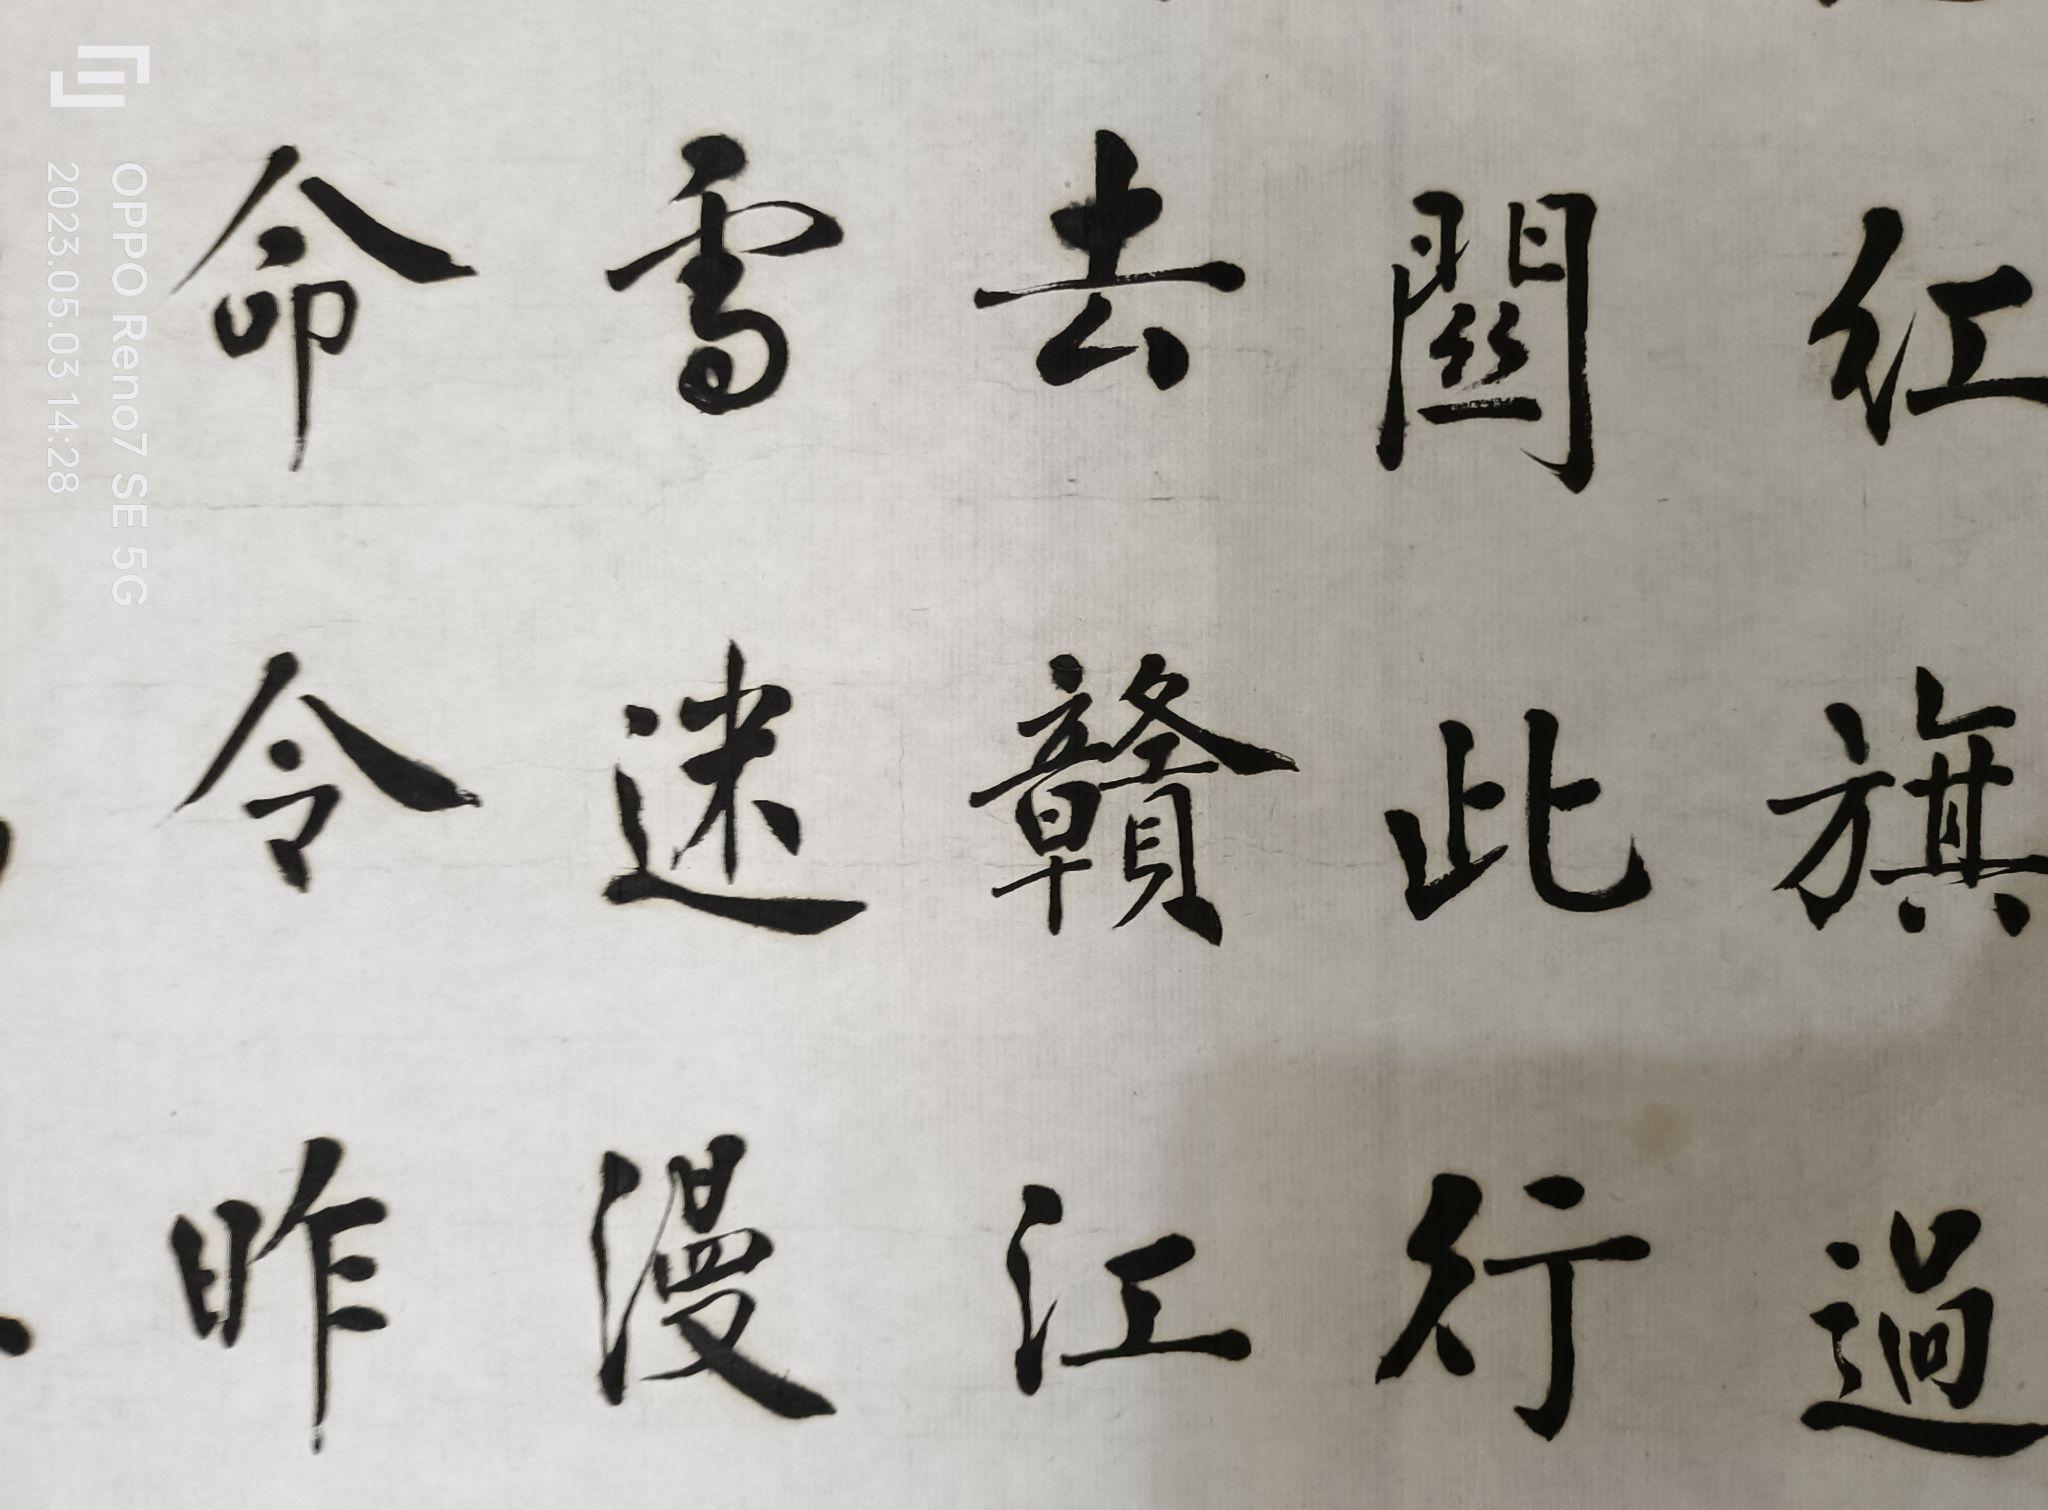 红旗過
関此行
去贛江
雪迷漫
命令昨
OPPO Reno7 SE 5G
2023.05.03 14:28